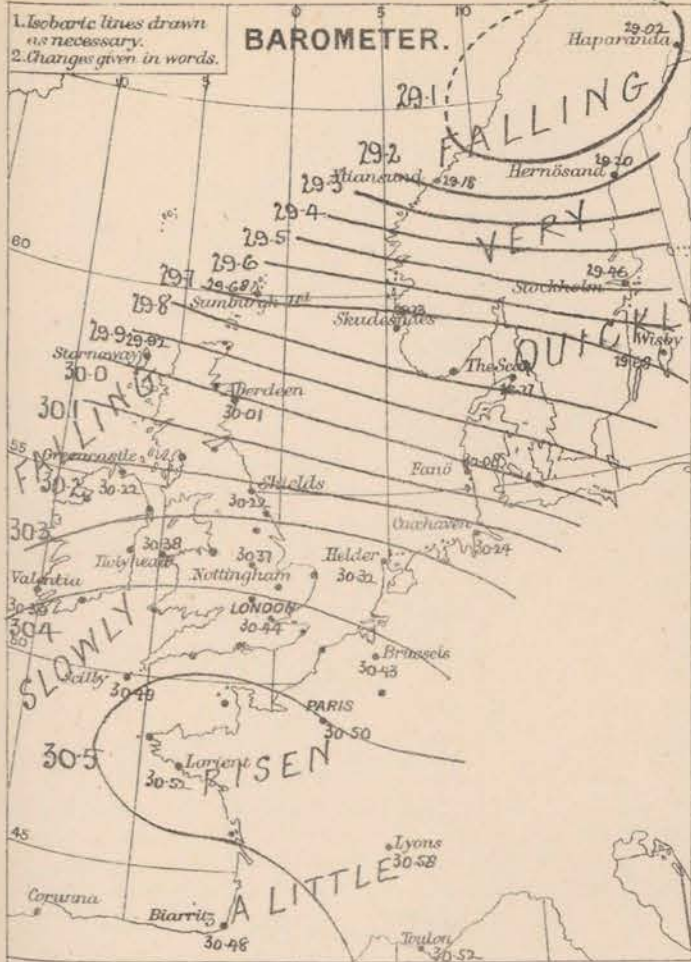 1. Isobaric lines drawn
as necessary.
2. Changes given in words.
BAROMETER.
10
5
0
5
10
29·02
Haparanda
29·1
FALLING
29·2
29·20
Hernösand
29·18
29·3
29·4
VERY
29·5
60
29·6
29·46
Stockholm
29·7
29·68
Sumburgh Hd.
29·8
Skudesnaes
QUICKLY
Wisby
29·9
29·92
Stornoway
The Scaw
30·0
FALLING
Aberdeen
30·01
30·1
55
Greencastle
30·22
Shields
30·22
Fanö
30·08
30·2
Cuxhaven
30·24
30·3
30·38
Holyhead
30·37
Nottingham
Helder
30·32
Valentia
LONDON
30·44
30·4
50
SLOWLY
Brussels
30·43
Scilly
30·49
PARIS
30·50
30·5
Lorient
30·52
RISEN
45
Lyons
30·58
A LITTLE
Corunna
Biarritz
30·48
Toulon
30·52